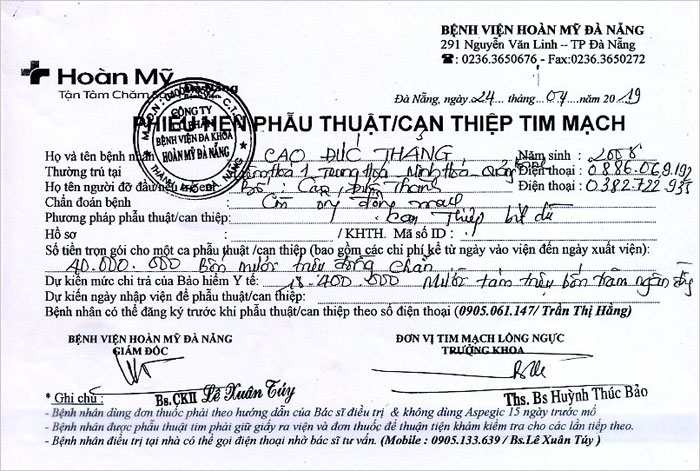 BỆNH VIỆN HOÀN MỸ ĐÀ NẴNG
291 Nguyễn Văn Linh – TP Đà Nẵng
☎: 0236.3650676 - Fax:0236.3650272
Hoàn Mỹ
Tận Tâm Chăm
Đà Nẵng, ngày 24 tháng 04 năm 2019
CÔNG TY
CỔ PHẦN
BỆNH VIỆN ĐA KHOA
HOÀN MỸ ĐÀ NẴNG
PHIẾU HẸN PHẪU THUẬT/CẢN THIỆP TIM MẠCH
Họ và tên bệnh nhân CAO ĐỨC THẮNG Năm sinh : 2008
Thường trú tại Trung Hoá Minh Hoá Quảng Điện thoại : 0886.069.192
Họ tên người đỡ đầu Bố: Cao Đức Điện thoại : 0.382.722.935
Chẩn đoán bệnh Còn ống động mạch
Phương pháp phẫu thuật/can thiệp: Can thiệp bít dù
Hồ sơ / KHTH. Mã số ID :
Số tiền trọn gói cho một ca phẫu thuật /can thiệp (bao gồm các chi phí kể từ ngày vào viện đến ngày xuất viện):
40.000.000 Bốn mươi triệu đồng chẵn
Dự kiến mức chi trả của Bảo hiểm Y tế: 18.400.000 Mười tám triệu bốn trăm ngàn
Dự kiến ngày nhập viện để phẫu thuật/can thiệp:
Bệnh nhân có thể đăng ký trước khi phẫu thuật/can thiệp theo số điện thoại (0905.061.147/ Trần Thị Hằng)
BỆNH VIỆN HOÀN MỸ ĐÀ NẴNG
GIÁM ĐỐC
ĐƠN VỊ TIM MẠCH LỒNG NGỰC
TRƯỞNG KHOA
Bs.CKII Lê Xuân Túy
Ths. Bs Huỳnh Thúc Bảo
* Ghi chú :
- Bệnh nhân dùng đơn thuốc phải theo hướng dẫn của Bác sĩ điều trị & không dùng Aspegic 15 ngày trước mổ
- Bệnh nhân được phẫu thuật tim phải giữ giấy ra viện và đơn thuốc để thuận tiện khám kiểm tra cho các lần tiếp theo.
- Bệnh nhân điều trị tại nhà có thể gọi điện thoại nhờ bác sĩ tư vấn. (Mobile : 0905.133.639 / Bs.Lê Xuân Túy )